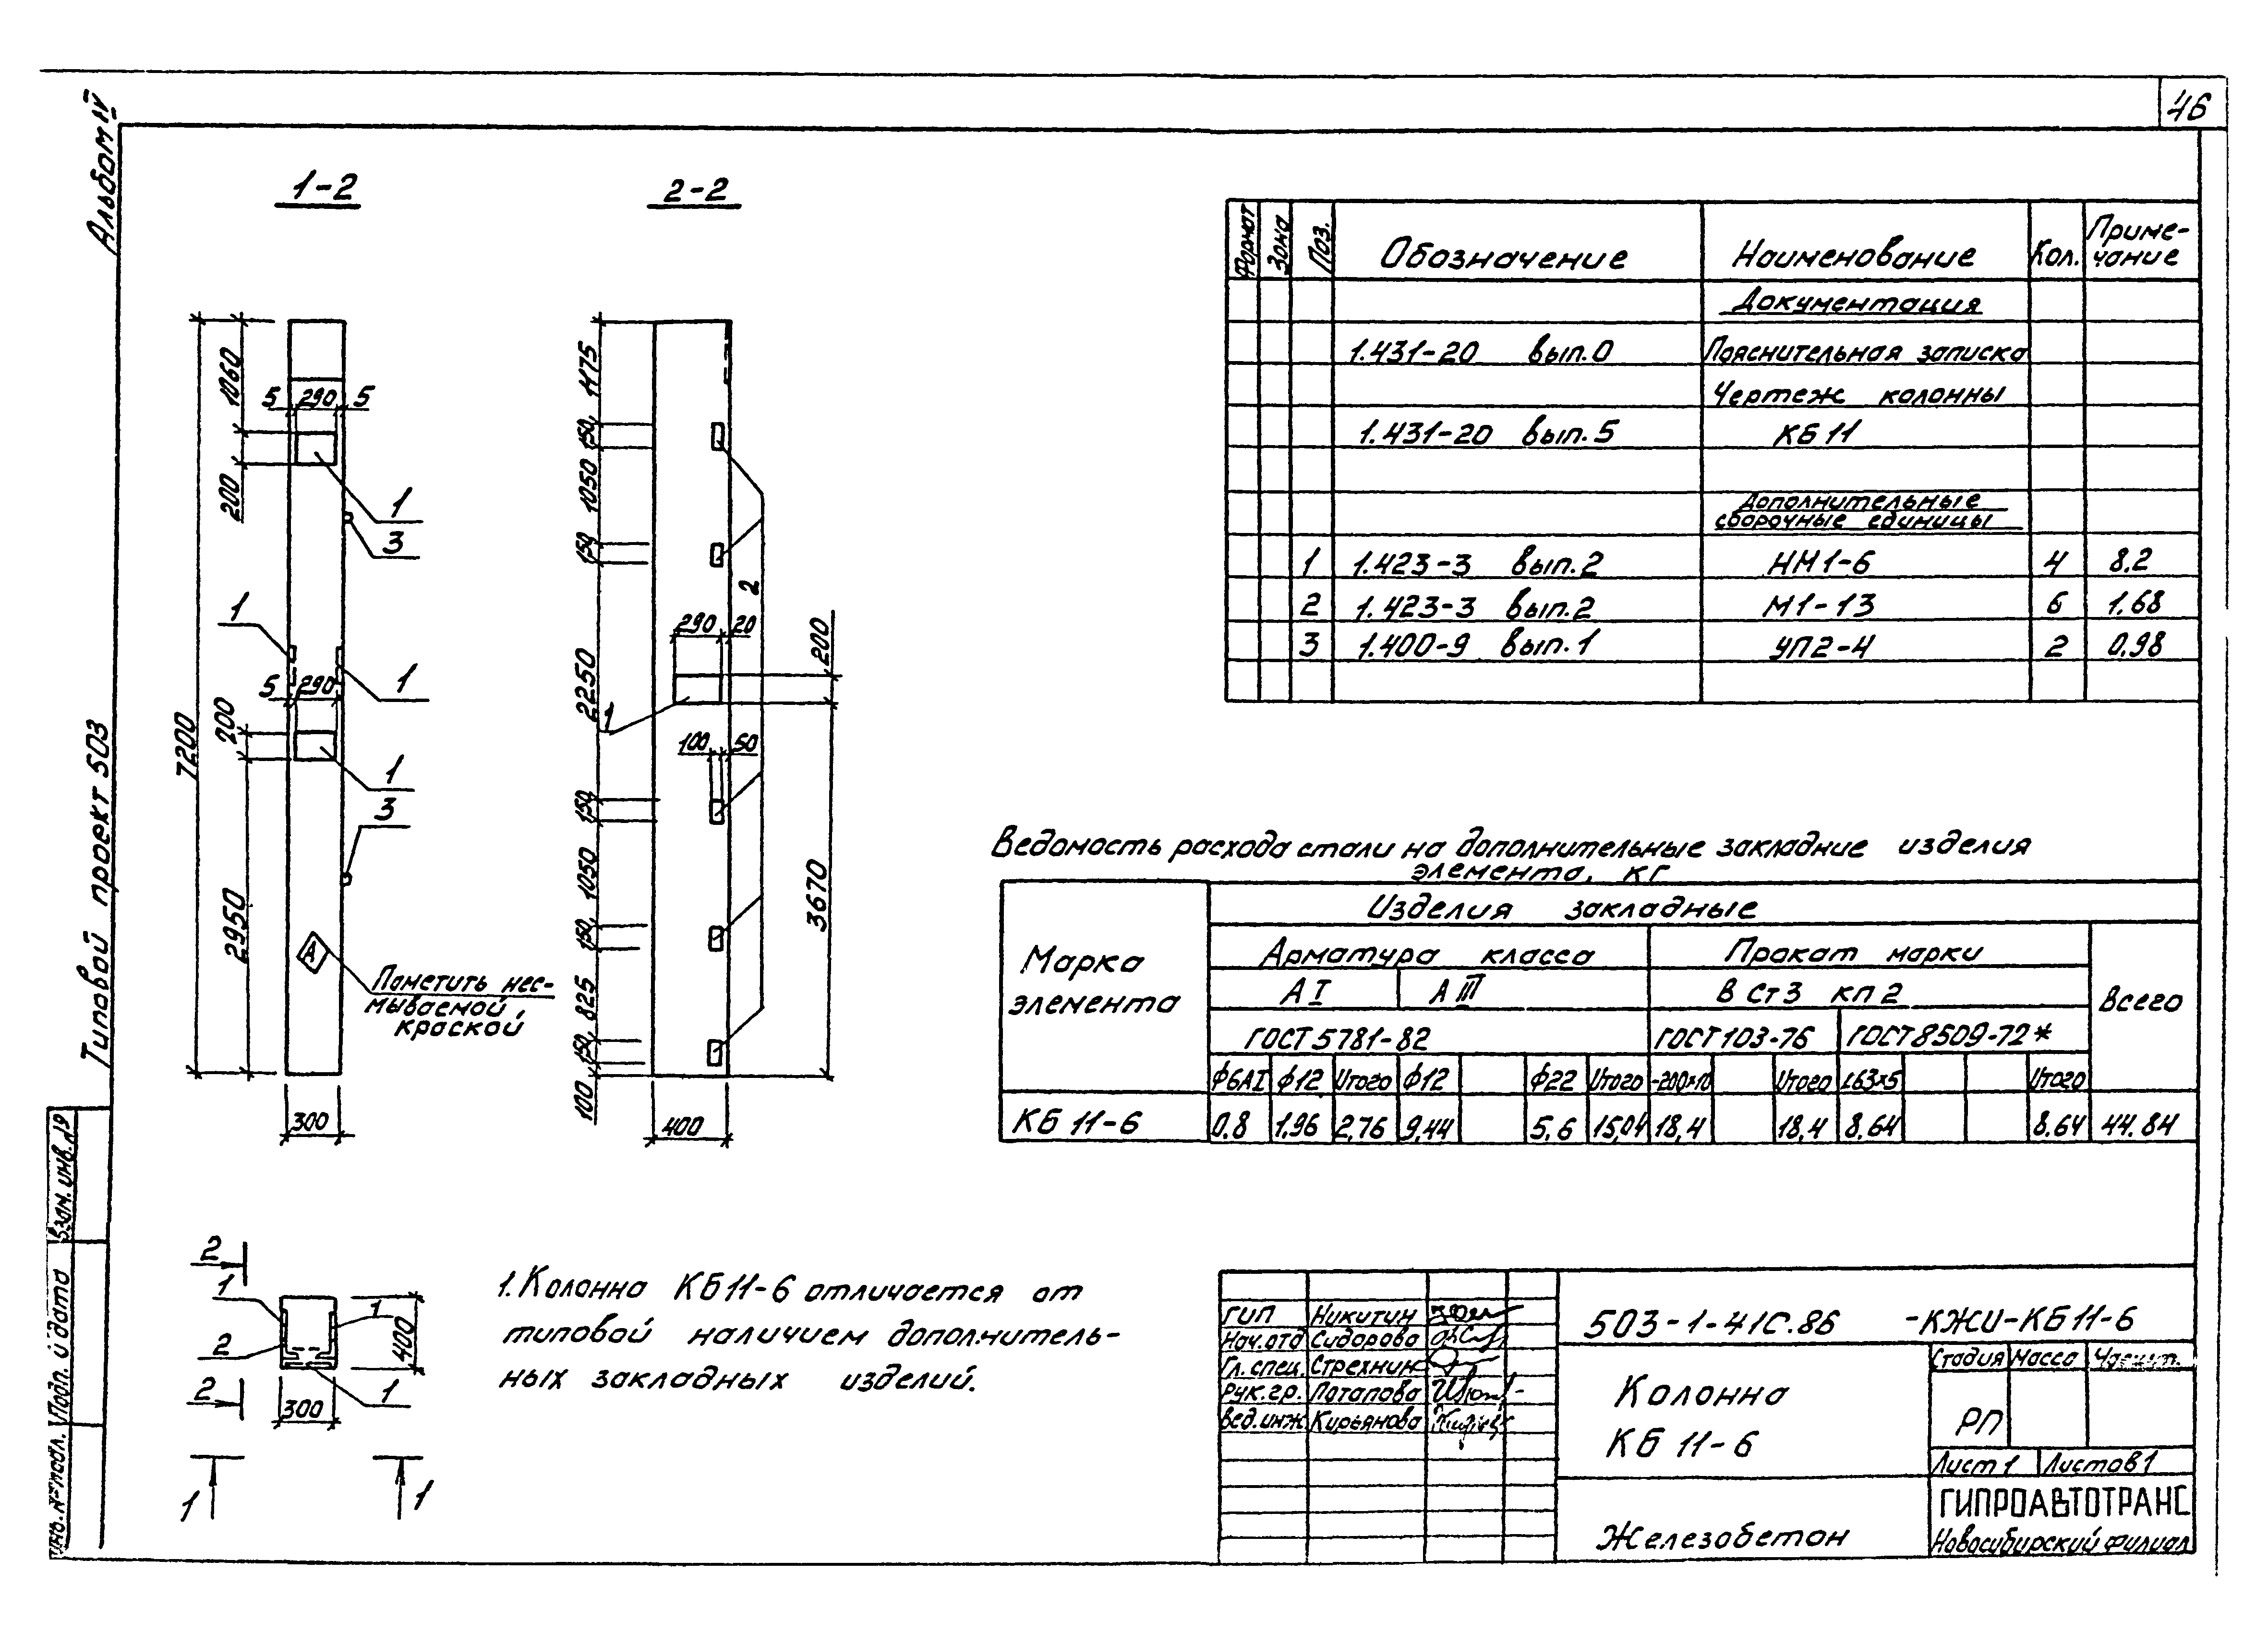 46
Альбом IV
Типовой проект 503
1-2
2-2
7200
1060
5 290 5
200
1
3
1
1
5 290
200
1
3
2950
А
Пометить нес-
мываемой
краской
300
1475
150
1050
150
2250
150
1050
150
825
150
100
2
290 20
200
1
100 50
3670
400
Формат Зона Поз. Обозначение Наименование Кол. Приме-
чание
Документация
1.431-20 вып.0 Пояснительная записка
Чертеж колонны
1.431-20 вып.5 КБ 11
Дополнительные
сборочные единицы
1 1.423-3 вып.2 НМ1-6 4 8.2
2 1.423-3 вып.2 М1-13 6 1.68
3 1.400-9 вып.1 УП2-4 2 0.98
Ведомость расхода стали на дополнительные закладние изделия
элемента, кг
Марка
элемента
Изделия закладные
Арматура класса Прокат марки
А I А III В Ст3 кп2 Всего
ГОСТ 5781-82 ГОСТ 103-76 ГОСТ 8509-72*
ф6АI ф12 Итого ф12 ф22 Итого -200×10 Итого L63×5 Итого
КБ 11-6 0,8 1,96 2,76 9,44 5,6 15,04 18,4 18,4 8,64 8,64 44.84
2
1
2
2
1
400
1
300
1
1
1. Колонна КБ11-6 отличается от
типовой наличием дополнитель-
ных закладных изделий.
ГИП Никитин
Нач.отд Сидорова
Гл.спец. Стрехнин
Рук.гр. Потапова
Вед.инж. Кирьянова
503-1-41с.86 -КЖИ-КБ11-6
Колонна
КБ 11-6
Стадия Масса
РП
Лист 1 Листов 1
Железобетон
ГИПРОАВТОТРАНС
Новосибирский филиал
Взам. инв. №
Подп. и дата
Инв. № подл.